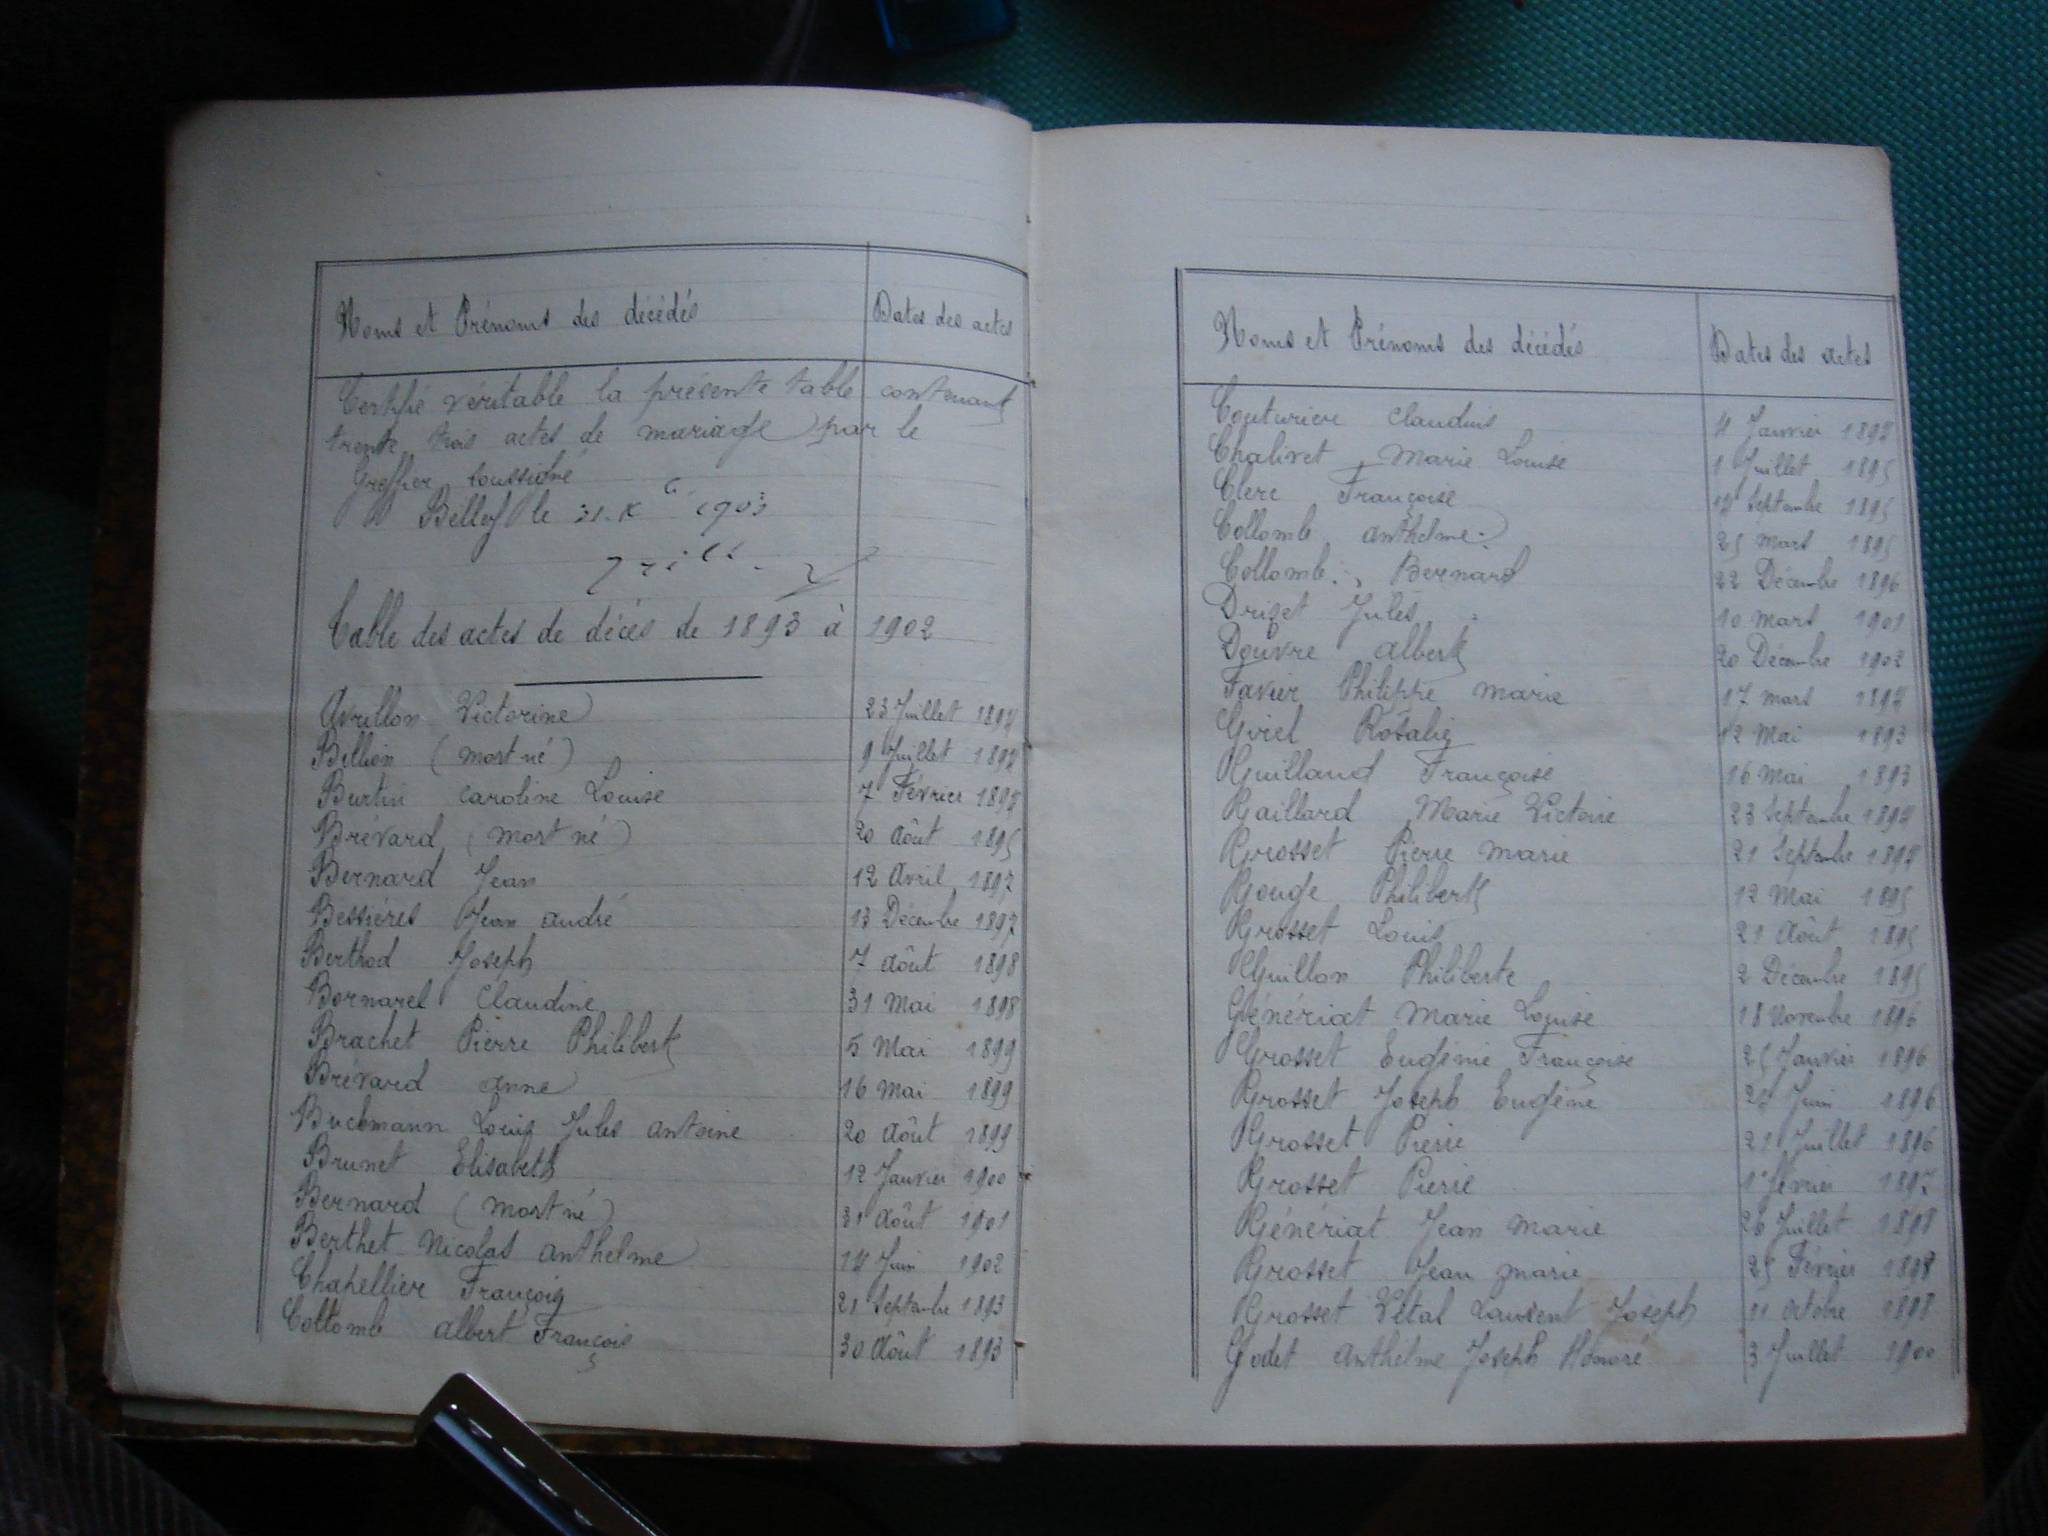 Noms et Prénoms des décédés Dates des actes
Certifié véritable la présente table contenant
trente trois actes de mariage par le
Greffier soussigné
Belley le 31. X 1903
Table des actes de décès de 1893 à 1902
Avrillon Victorine 23 Juillet 1894
Billion (mort né) 9 Juillet 1894
Burtin Caroline Louise 7 Février
Brévard (mort né) 20 Août 1895
Bernard Jean 12 Avril 1897
Bessières Jean André 13 Décembre 1897
Berthod Joseph 7 Août 1898
Bornarel Claudine 31 Mai 1898
Brachet Pierre Philibert 5 Mai 1899
Brévard Anne 16 Mai 1899
Bucbmann Louis Jules Antoine 20 Août 1899
Brunet Elisabeth 12 Janvier 1900
Bernard (mort né) 31 Août 1901
Berthet Nicolas Anthelme 14 Juin 1902
Chapellier François 21 Septembre 1893
Collomb Albert François 30 Août 1893
Noms et Prénoms des décédés Dates des actes
Couturier Claudius 4 Janvier 1894
Chalivet Marie Louise 1 Juillet 1895
Clerc Françoise 14 Septembre 1895
Collomb Anthelme 25 Mars 1895
Collomb Bernard 22 Décembre 1896
Driset Jules 10 Mars 1901
Douvre Albert 20 Décembre 1902
Favier Philippe Marie 17 Mars 1894
Goiel Rosalie 12 Mai 1893
Guilland Françoise 16 Mai 1893
Gaillard Marie Victoire 23 Septembre 1894
Grosset Pierre Marie 21 Septembre 1894
Gouge Philibert 12 Mai 1895
Grosset Louis 21 Août 1895
Guillon Philiberte 2 Décembre 1895
Génériat Marie Louise 18 Novembre 1896
Grosset Eugénie Françoise 25 Janvier 1896
Grosset Joseph Eugène Juin 1896
Grosset Pierre 21 Juillet 1896
Grosset Pierre 1er Février 1897
Génériat Jean Marie 26 Juillet 1898
Grosset Jean Marie 25 Février 1898
Grosset Vital Laurent Joseph 11 Octobre 1898
Godet Anthelme Joseph Honoré 3 Juillet 1900